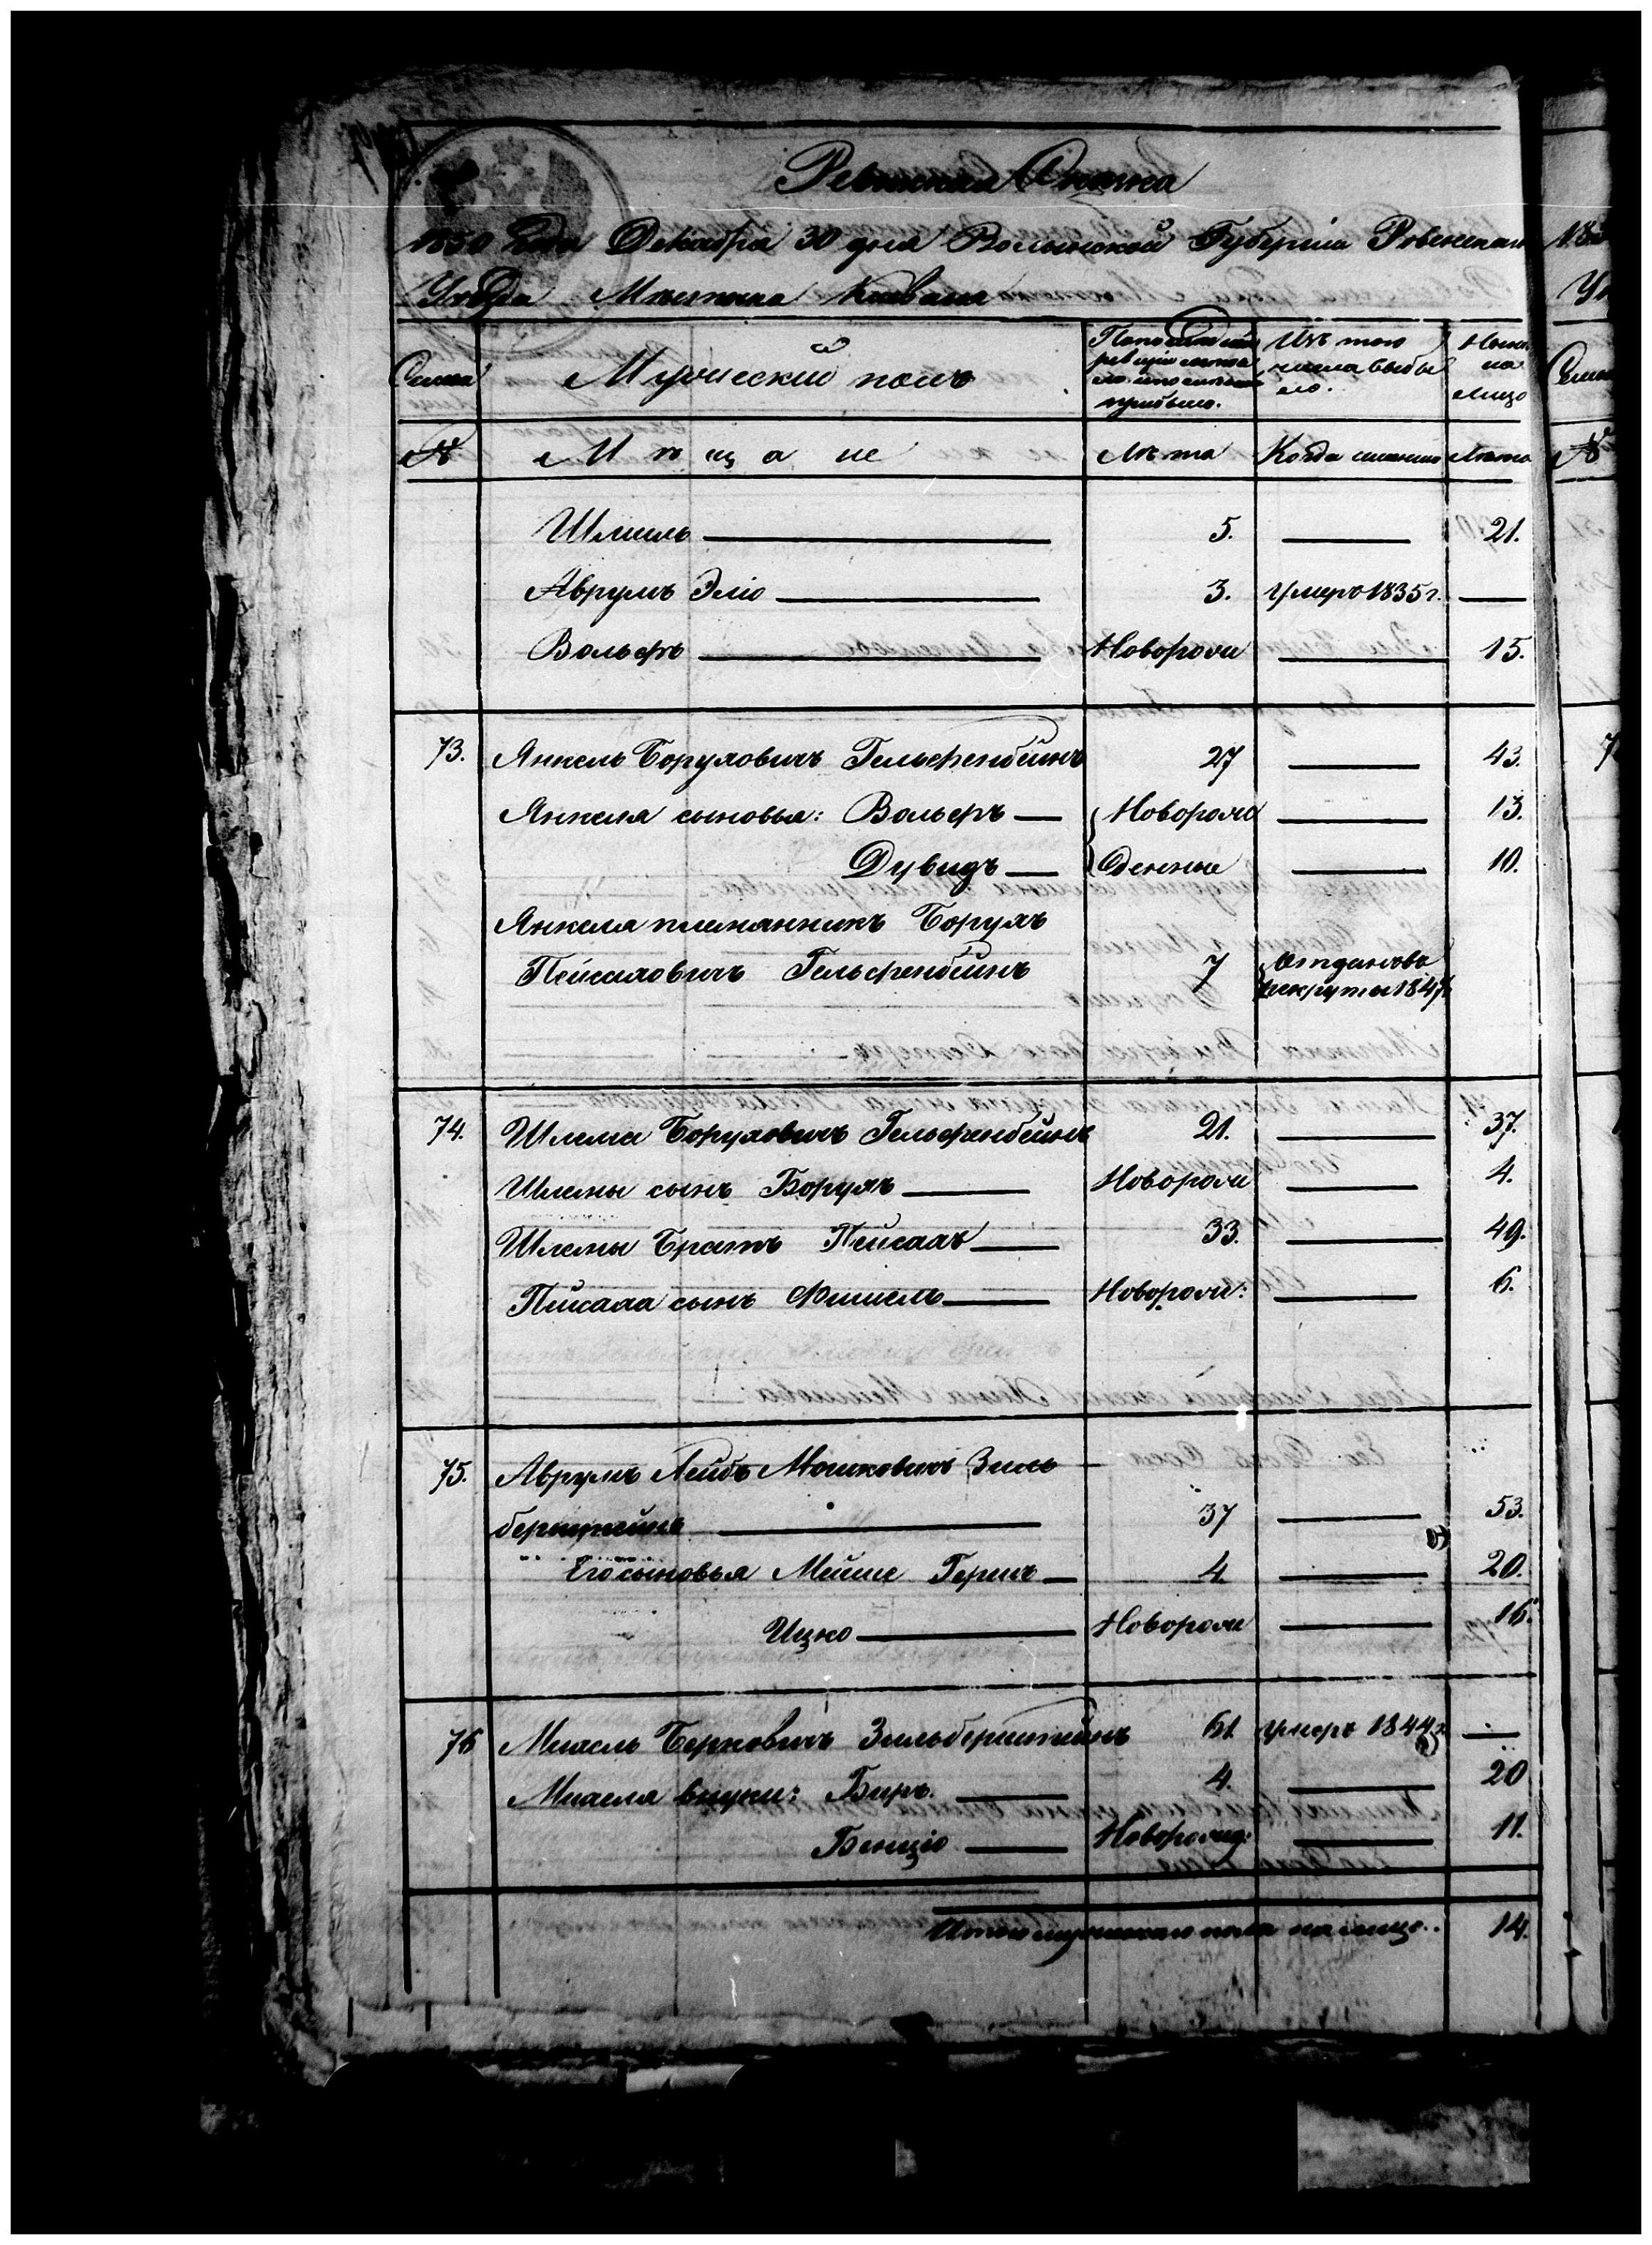 Ревизская Сказка
1850 Года Декабря 30 дня Волынской Губерніи Ровенскаго
Уѣзда Мѣстечка Клевана
Семьи Мужеский полъ По последней ревизіи состояло и после прибыло. Изъ того числа выбыло. Ныне на лицо
№ Мѣщане Лѣта Когда именно Лѣта
Шмиль 5. 21.
Аврумъ Эліо 3. Умеръ 1835 г.
Вольфъ Новорож 15.
73. Янкель Боруховичъ Гельфенбейнъ 27 43.
Янкеля сыновья: Вольфъ Новорож 13.
Дувидъ денные 10.
Янкеля племянникъ Борухъ
Пейсаховичъ Гельфенбейнъ 7 Отданъ въ
рекруты 1847
74. Шлема Боруховичъ Гельфенбейнъ 21. 37.
Шлемы сынъ Борухъ Новорож 4.
Шлемы Братъ Пейсахъ 33. 49.
Пейсаха сынъ Фишель Новорож: 6.
75. Аврумъ Лейбъ Мошковичъ Зиль
берштейнъ 37 53.
Его сыновья Мейше Гершъ 4 20.
Ицко Новорож 16.
76 Михель Берковичъ Зильберштейнъ 61. умеръ 1844 г.
внуки: Беръ. 4. 20
Бенціо Новорожд: 11.
Итого мужескаго пола на лицо.. 14.